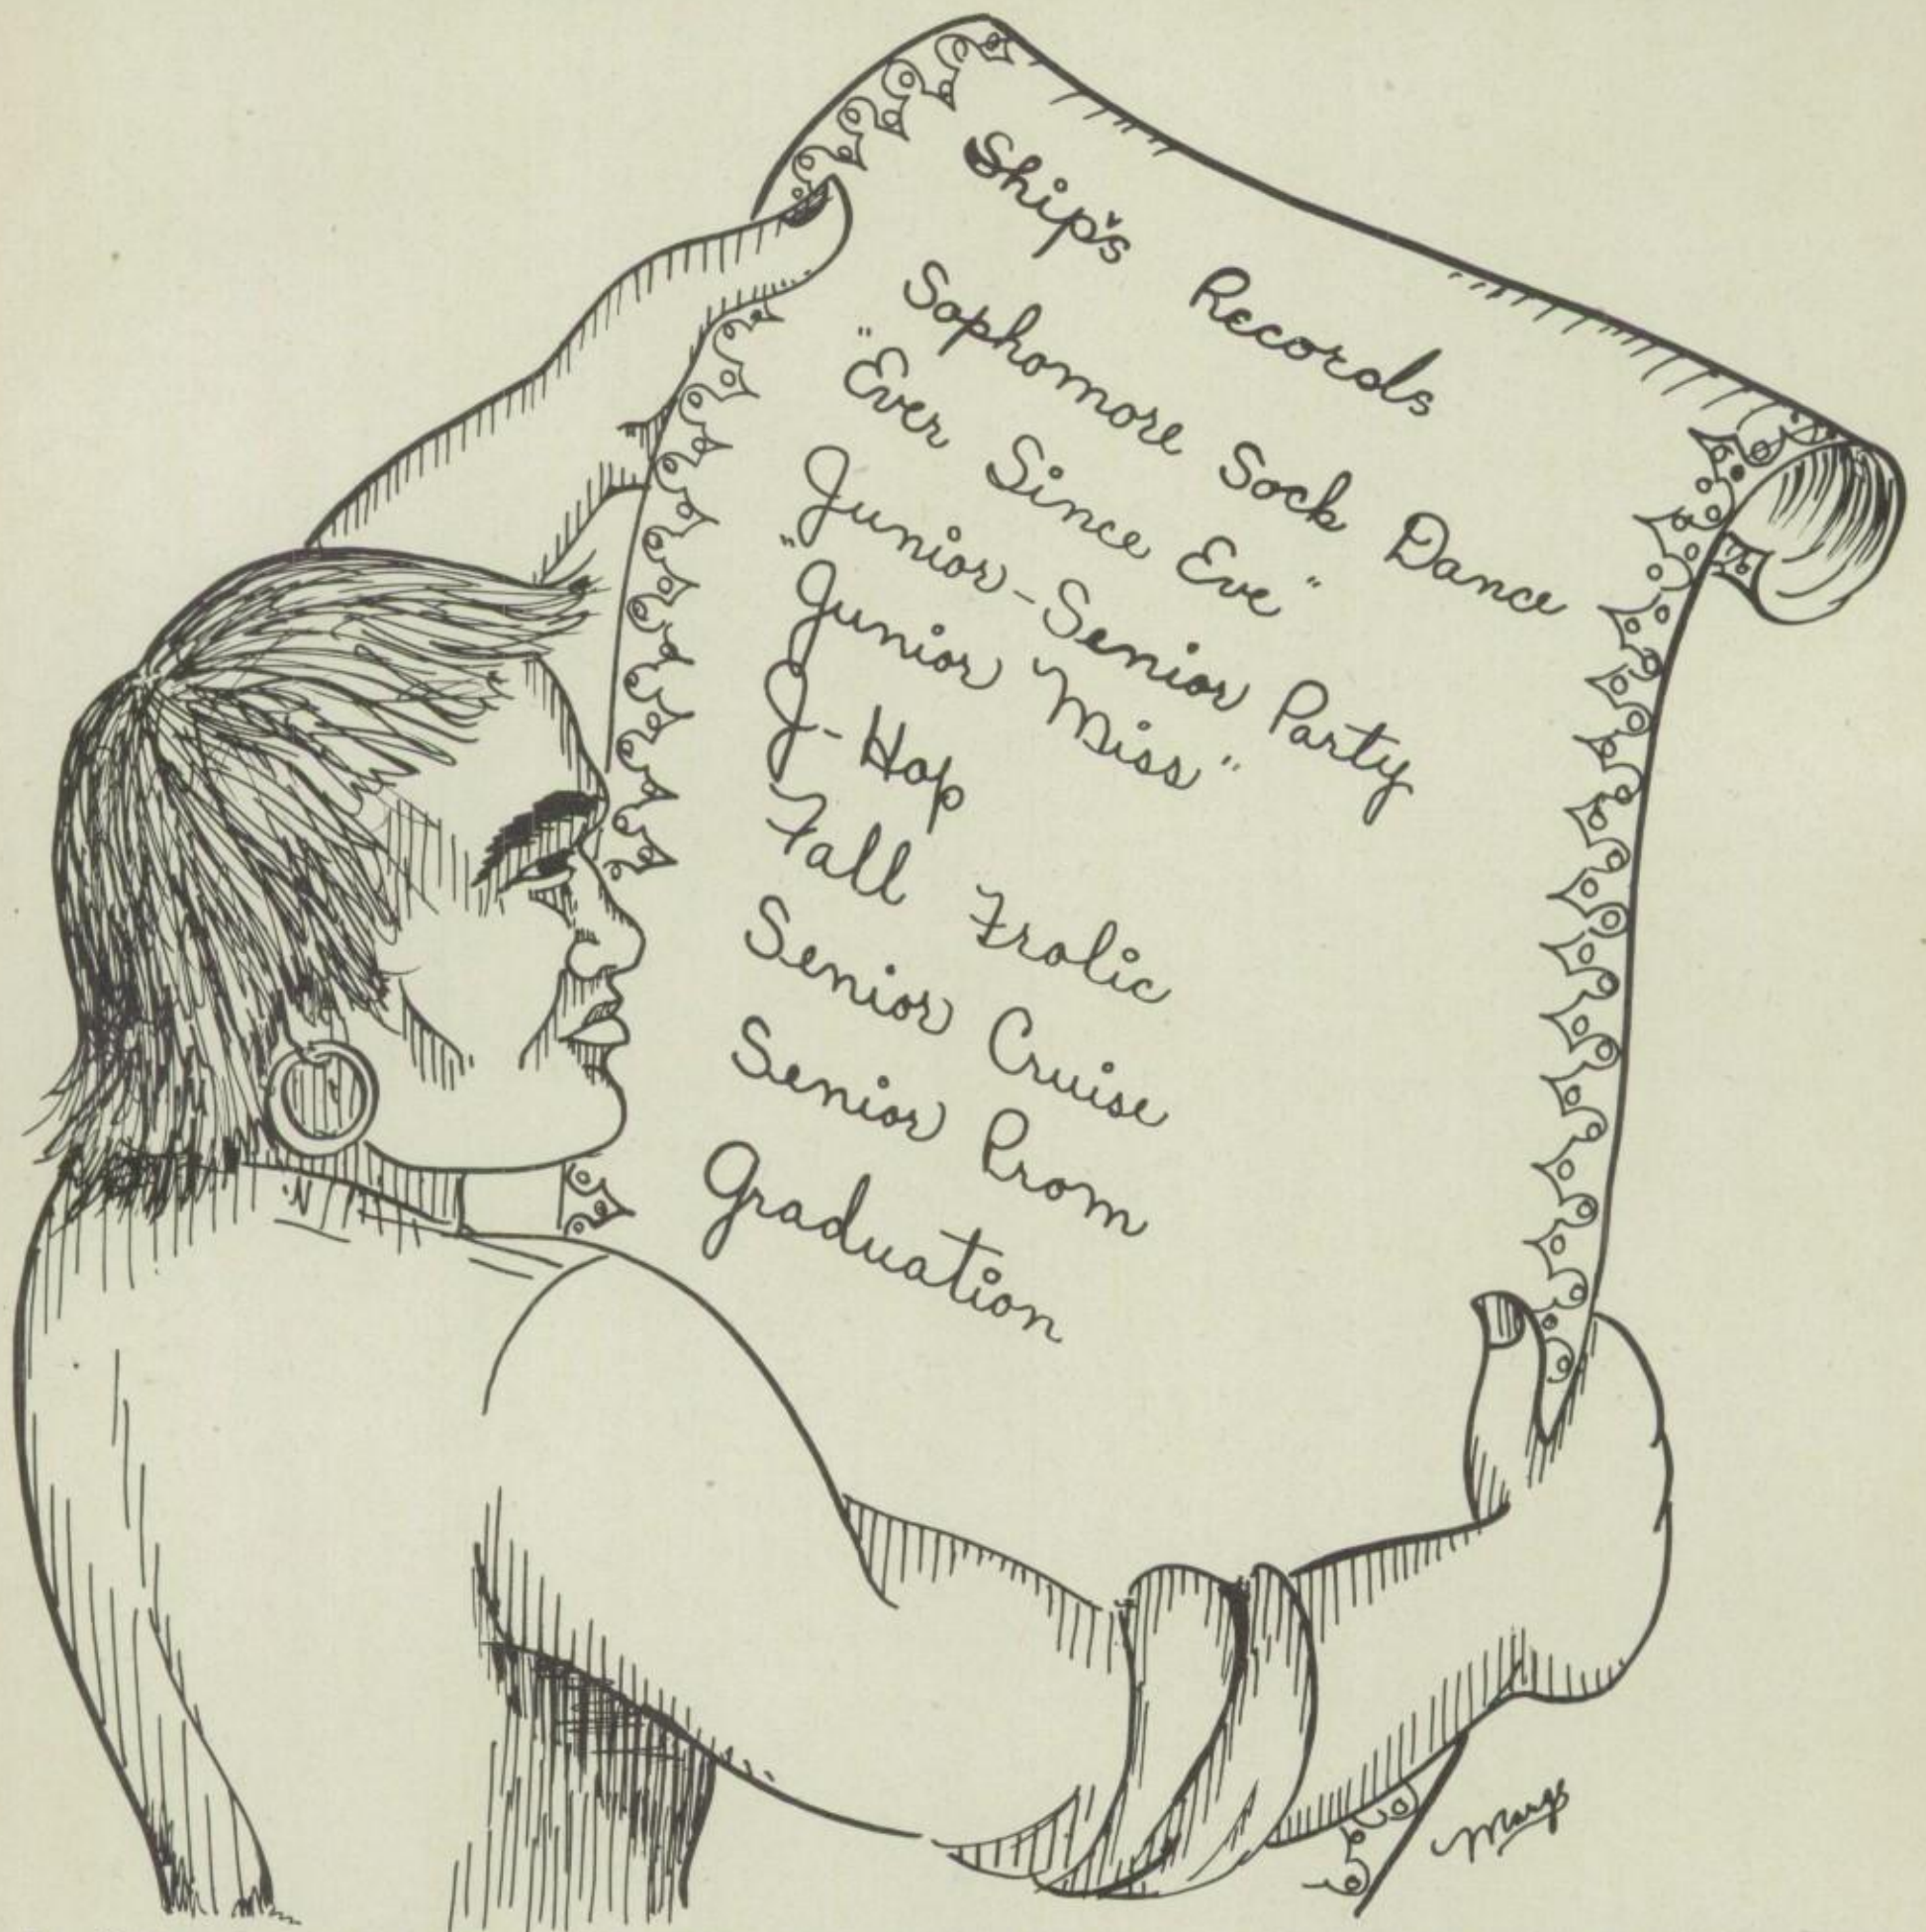 Ship's Records
Sophomore Sock Dance
"Ever Since Eve"
Junior-Senior Party
"Junior Miss"
J-Hop
Fall Frolic
Senior Cruise
Senior Prom
Graduation
Margs